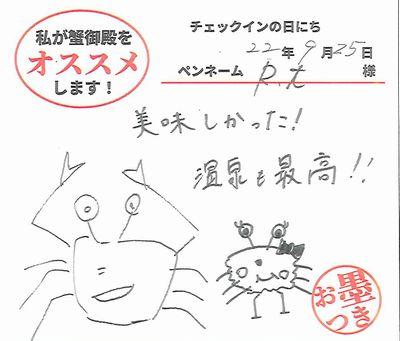 私が蟹御殿を
オススメ
します！
チェックインの日にち
22年9月25日
ペンネーム P.t 様
美味しかった!
温泉も最高!!
お墨つき